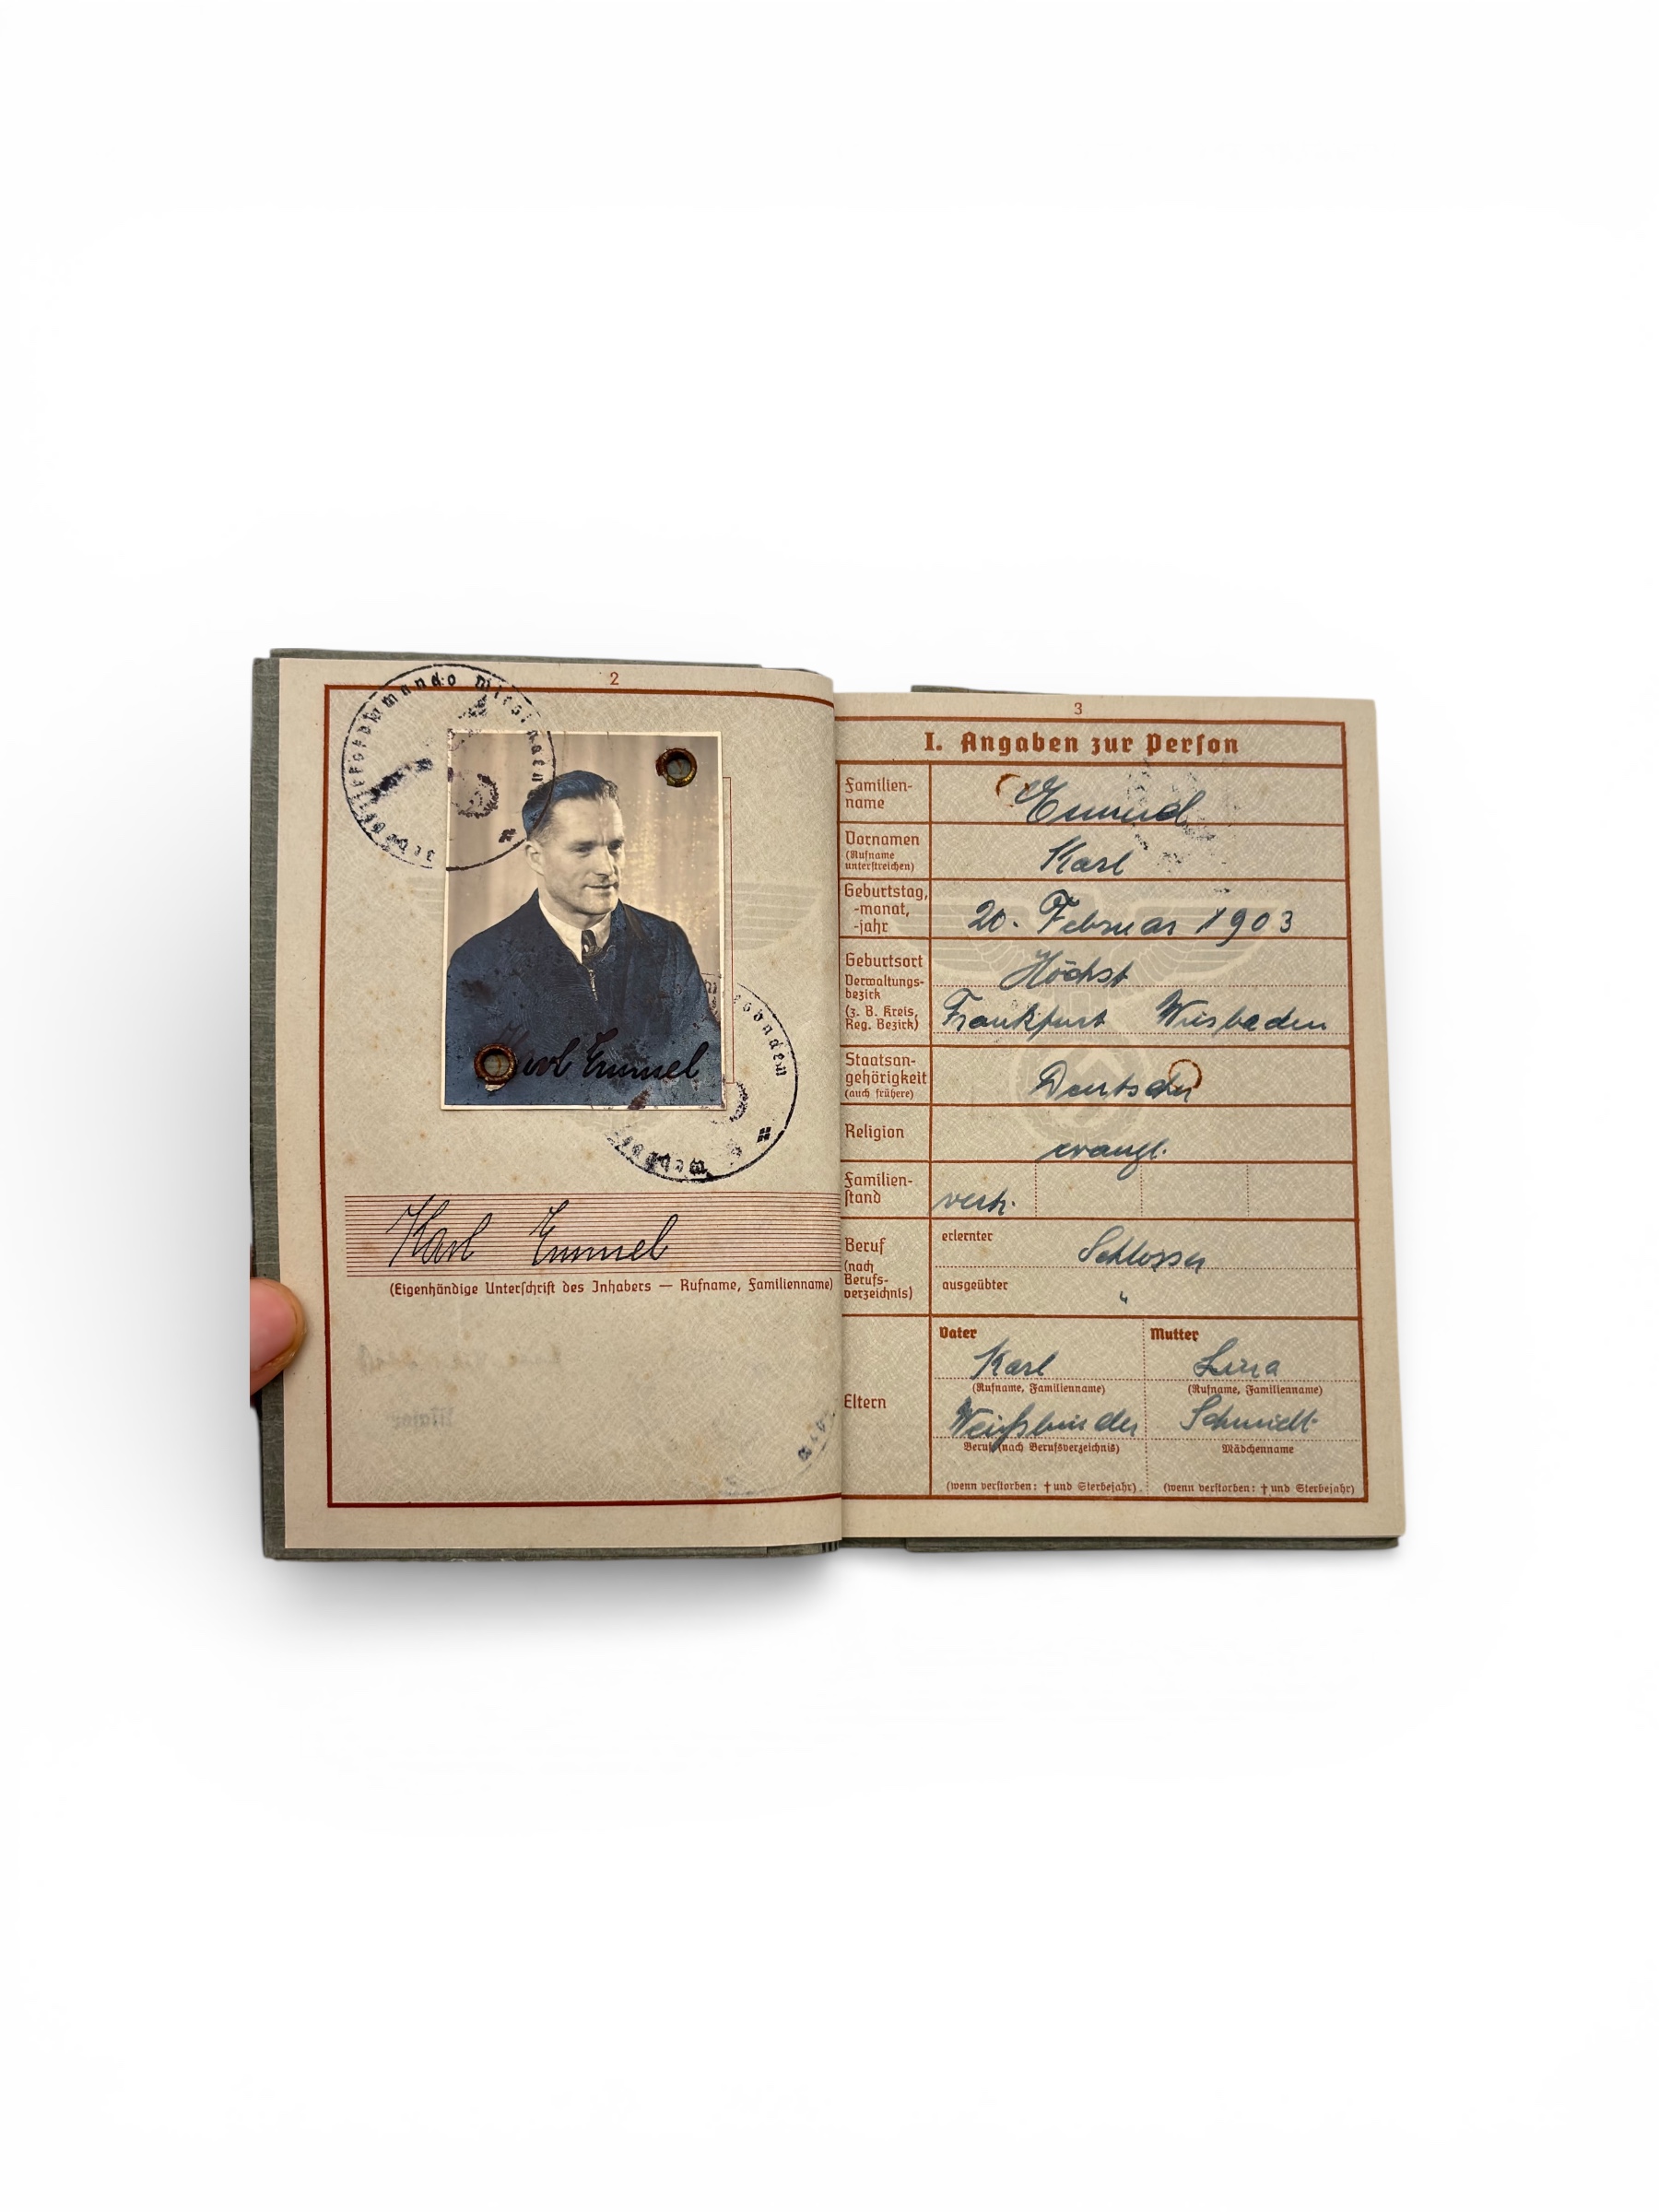 2
Wehrbezirkskommando Wiesbaden
Karl Emmel
Wiesbaden
Karl Emmel
(Eigenhändige Unterschrift des Inhabers — Rufname, Familienname)
3
I. Angaben zur Person
Familien-
name
Emmel
Vornamen
(Rufname
unterstreichen)
Karl
Geburtstag,
-monat,
-jahr
20. Februar 1903
Geburtsort
Verwaltungs-
bezirk
(z. B. Kreis,
Reg. Bezirk)
Höchst
Frankfurt Wiesbaden
Staatsan-
gehörigkeit
(auch frühere)
Deutscher
Religion
evangl.
Familien-
stand
verh.
Beruf
(nach
Berufs-
verzeichnis)
erlernter
Schlosser
ausgeübter
"
Eltern
Vater
Karl
(Rufname, Familienname)
Weißbinder
Beruf (nach Berufsverzeichnis)
(wenn verstorben: † und Sterbejahr)
Mutter
Lina
(Rufname, Familienname)
Schmidt
Mädchenname
(wenn verstorben: † und Sterbejahr)